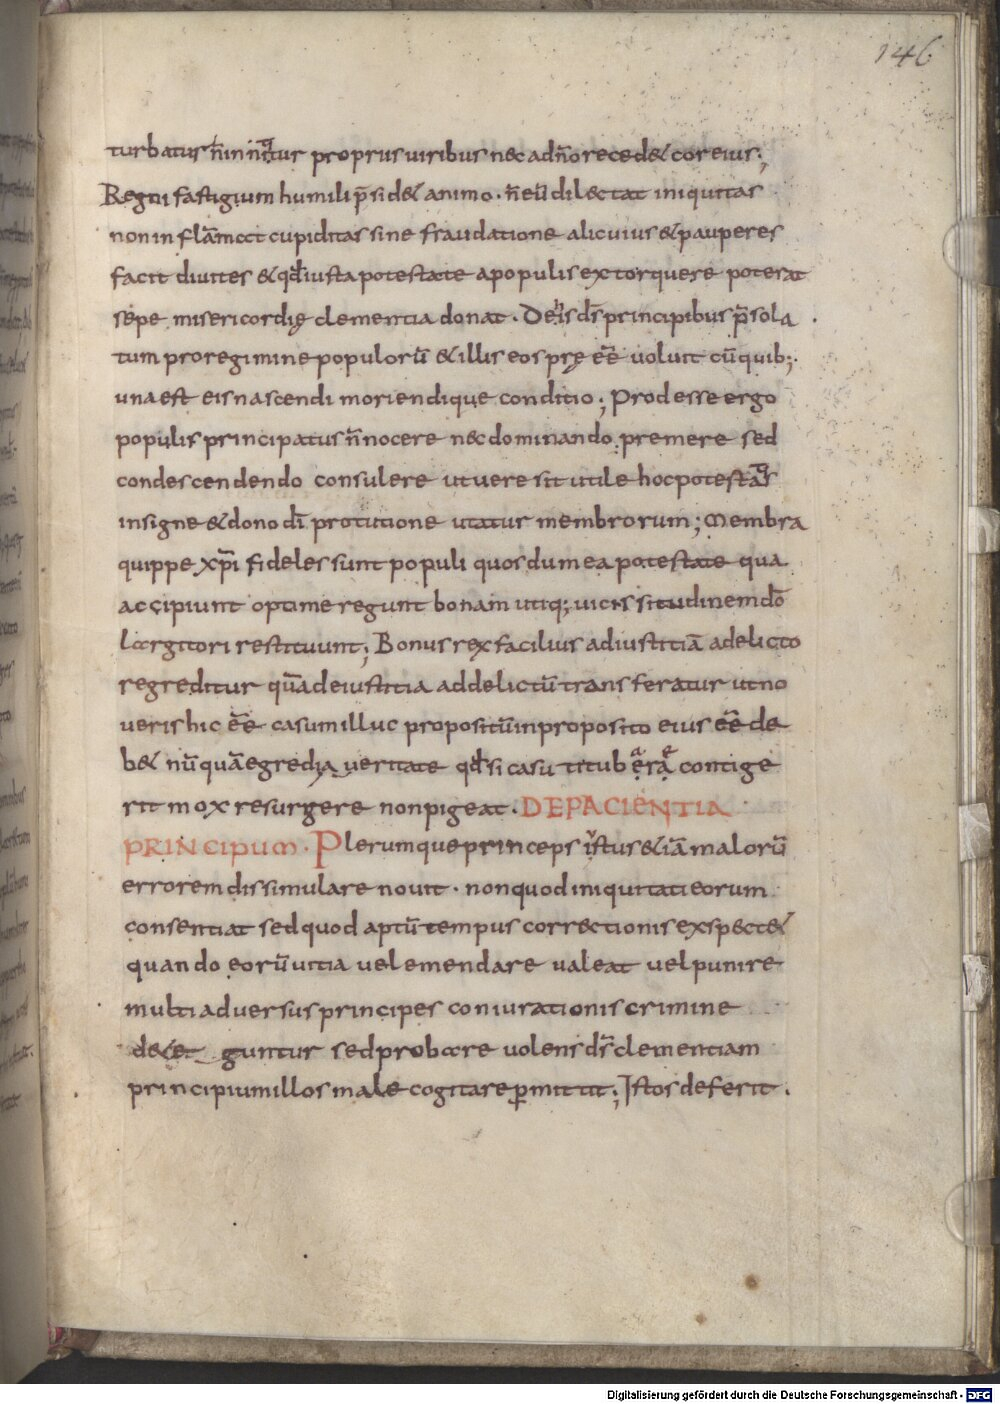 146
turbatur n̄ innitatur propriis uiribus nec a dn̄o recedet cor eius;
Regni fastigium humili p̄sidet animo. n̄ eū dilectat iniquitas
non inflāmat cupiditas sine fraudatione alicuius & pauperes
facit diuites & qđ iusta potestate a populis extorquere poterat
sepe misericordię clementia donat. Dedis ds̄ principibus p̄sola
tum pro regimine populorū & illis eos pręēē uoluit cū quib;
una est eis nascendi moriendique conditio; Prodesse ergo
populis principatus n̄ nocere nec dominando premere sed
condescendendo consulere ut uere sit utile hoc potestatis
insigne & dono dī pro tutione utatur membrorum; Membra
quippe xp̄i fideles sunt populi quos dum ea potestate qua
accipiunt optime regunt bonam utiq; uicissitudinem dō
largitori restituunt; Bonus rex facilius ad iustitiā a delicto
regreditur quā de iustitia ad delictū transferatur ut no
ueris hic ēē casum illuc propositū in proposito eius ēē de
bet nūquā egredi a ueritate qđ si casu titubera contige
rit mox resurgere non pigeat. DE PACIENTIA
PRINCIPUM. Plerumque princeps iustus etiā malorū
errorem dissimulare nouit. non quod iniquitati eorum
consentiat sed quod aptū tempus correctionis exspectet
quando eorū uitia uel emendare ualeat uel punire
multi aduersus principes coniurationis crimine
dete guntur sed probare uolens ds̄ clementiam
principium illos male cogitare p̄mittit; Istos deserit.
Digitalisierung gefördert durch die Deutsche Forschungsgemeinschaft - DFG